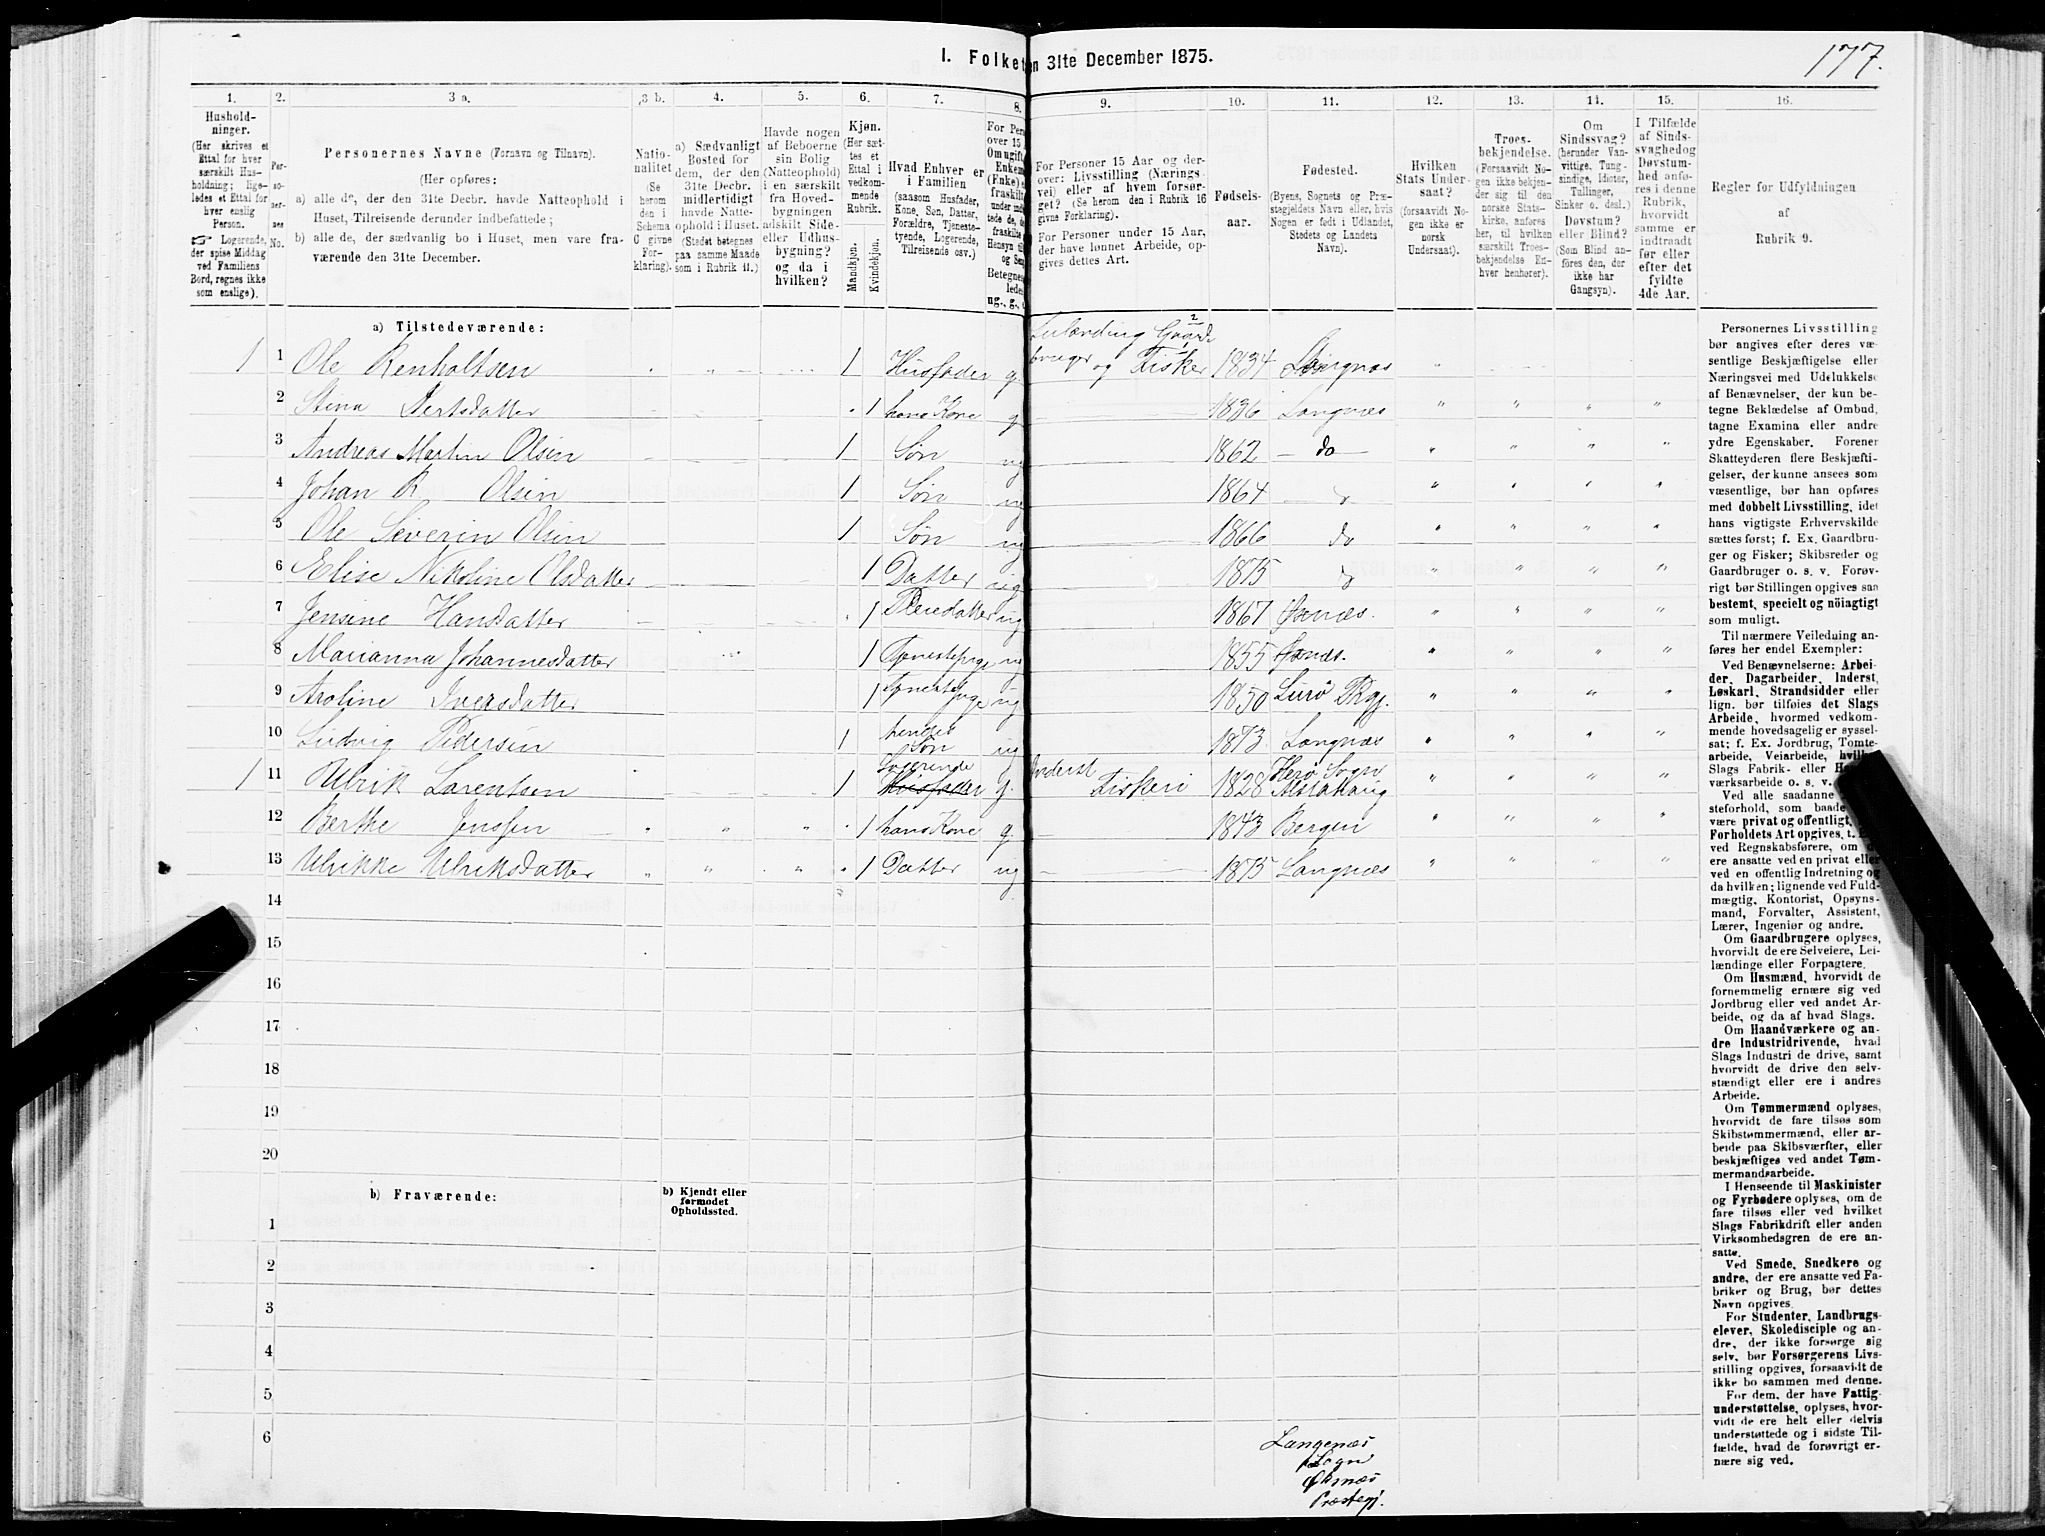 I. Folket en 31te December 1875.
177.
1. 2. 3 a. 3 b. 4. 5. 6. 7. 8. 9. 10. 11. 12. 13. 14. 15. 16.
Hushold-
ninger.
(Her skrives et
Ettal for hver
særskilt Hus-
holdning; lige-
ledes et Ettal for
hver enslig
Person.
☞ Logerende,
der spise Middag
ved Familiens
Bord, regnes ikke
som enslige).
Per-
so-
ner-
nes
No.
Personernes Navne (Fornavn og Tilnavn).
(Her opføres:
a) alle de, der den 31te Decbr. havde Natteophold i
Huset, Tilreisende derunder indbefattede;
b) alle de, der sædvanlig bo i Huset, men vare fra-
værende den 31te December.
Natio-
nalitet
(Se
herom
den i
Schema
C givne
For-
klaring).
a) Sædvanligt
Bosted for
dem, der den
31te Decbr.
midlertidigt
havde Natte-
ophold i Huset.
(Stedet betegnes
paa samme Maade
som i Rubrik 11.)
Havde nogen
af Beboerne
sin Bolig
(Natteophold)
i en særskilt
fra Hoved-
bygningen
adskilt Side-
eller Udhus-
bygning?
og da i
hvilken?
Kjøn.
(Her sæt-
tes et
Ettal i
vedkom-
mende
Rubrik.
Mandkjøn.
Kvindekjøn.
Hvad Enhver er
i Familien
(saasom Husfader,
Kone, Søn, Datter,
Forældre, Tjeneste-
tyende, Logerende,
Tilreisende osv.)
For Per
over 15
Om ugift
Enkem
(Enke) e
fraskilt
under
tede de, de
fraskilte
Hensyn til
og Seng
Betegnes
ledes
ug., g.,
For Personer 15 Aar og der-
over: Livsstilling (Nærings-
vei) eller af hvem forsør-
get? (Se herom den i Rubrik 16
givne Forklaring).
For Personer under 15 Aar,
der have lønnet Arbeide, op-
gives dettes Art.
Fødsels-
aar.
Fødested.
(Byens, Sognets og Præ-
stegjeldets Navn eller, hvis
Nogen er født i Udlandet,
Stedets og Landets
Navn).
Hvilken
Stats Under-
saat?
(forsaavidt No-
gen ikke er
norsk
Undersaat).
Troes-
bekjendelse.
(Forsaavidt No-
gen ikke bekjen-
der sig til den
norske Stats-
kirke, anføres
her, til hvilken
særskilt Troes-
bekjendelse En-
hver henhører).
Om
Sindssvag?
(herunder Van-
vittige, Tung-
sindige, Idioter,
Tullinger,
Sinker o. desl.)
Døvstum?
eller Blind?
(Som Blind an-
føres den, der
ikke har
Gangsyn).
I Tilfælde
af Sinds-
svaghed og
Døvstum-
hed anfø-
res i denne
Rubrik,
hvorvidt
samme er
indtraadt
før eller
efter det
fyldte
4de Aar.
Regler for Udfyldningen
af
Rubrik 9.
a) Tilstedeværende:
1 1 Ole Renholtsen 1 Husfader g. Leilænding Gaard-
bruger og Fisker 1834 Langnæs
2 Stina Dertsdatter 1 hans Kone g 1836 Langnæs
3 Andreas Martin Olsen 1 Søn ug 1862 do
4 Johan R. Olsen 1 Søn ug 1864 do
5 Ole Severin Olsen 1 Søn ug 1866 do
6 Elise Nikoline Olsdatter 1 Datter ug 1875 do
7 Jensine Hansdatter 1 Pleiedatter ug 1867 Øxnæs.
8 Marianna Johannesdatter 1 Tjenestepige ug 1855 Øxnæs.
9 Aroline Iversdatter 1 Tjenestepige ug 1850 Lurö Prgj.
10 Ludvig Pedersen 1 hendes Søn ug 1873 Langnæs
1 11 Ulrik Lorentsen 1 Logerende Husfader g. Inderst Fiskeri 1828 Herö Sogn Alstahaug
12 Berthe Jenssen 1 hans Kone g. 1843 Bergen
13 Ulrikke Ulriksdatter 1 Datter ug 1875 Langnæs
14
15
16
17
18
19
20
b) Fraværende:
b) Kjendt eller
formodet
Opholdssted.
1
2
3
4
5
6
Langenæs
Sogn
Øksnæs
Præstegj.
Personernes Livsstilling
bør angives efter deres væ-
sentlige Beskjæftigelse eller
Næringsvei med Udelukkelse
af Benævnelser, der kun be-
tegne Beklædelse af Ombud,
tagne Examina eller andre
ydre Egenskaber. Forener
Skatteyderen flere Beskjæfti-
gelser, der kunne ansees som
væsentlige, bør han opføres
med dobbelt Livsstilling, idet
hans vigtigste Erhvervskilde
sættes først; f. Ex. Gaardbru-
ger og Fisker; Skibsreder og
Gaardbruger o. s. v. Forøv-
rigt bør Stillingen opgives saa
bestemt, specielt og nöiagtigt
som muligt.
Til nærmere Veiledning an-
føres her endel Exempler:
Ved Benævnelserne: Arbei-
der, Dagarbeider, Inderst,
Løskarl, Strandsidder eller
lign. bør tilføies det Slags
Arbeide, hvormed vedkom-
mende hovedsagelig er syssel-
sat; f. Ex. Jordbrug, Tomte-
arbeide, Veiarbeide, hvilket
Slags Fabrik- eller
værksarbeide o. s. v.
Ved alle saadanne
steforhold, som baade
være privat og offentligt,
Forholdets Art opgives, t. Ex.
ved Regnskabsførere, om
ere ansatte ved en privat eller
ved en offentlig Indretning og
da hvilken; lignende ved Fuld-
mægtig, Kontorist, Opsyns-
mand, Forvalter, Assistent,
Lærer, Ingeniør og andre.
Om Gaardbrugere oplyses,
hvorvidt de ere Selveiere, Lei-
lændinge eller Forpagtere.
Om Husmænd, hvorvidt de
fornemmelig ernære sig ved
Jordbrug eller ved andet Ar-
beide, og da af hvad Slags.
Om Haandværkere og an-
dre Industridrivende, hvad
Slags Industri de drive, samt
hvorvidt de drive den selv-
stændigt eller ere i andres
Arbeide.
Om Tømmermænd oplyses,
hvorvidt de fare tilsøs som
Skibstømmermænd, eller ar-
beide paa Skibsværfter, eller
beskjæftiges ved andet Tøm-
mermandsarbeide.
I Henseende til Maskinister
og Fyrbødere oplyses, om de
fare tilsøs eller ved hvilket
Slags Fabrikdrift eller anden
Virksomhedsgren de ere an-
satte.
Ved Smede, Snedkere og
andre, der ere ansatte ved Fa-
briker og Brug, bør dettes
Navn opgives.
For Studenter, Landbrugs-
elever, Skoledisciple og an-
dre, der ikke forsørge sig
selv, bør Forsørgerens Livs-
stilling opgives, forsaavidt de
ikke bo sammen med denne.
For dem, der have Fattig-
understøttelse, oplyses, hvor-
vidt de ere helt eller delvis
understøttede og i sidste Til-
fælde, hvad de forøvrigt er-
nære sig ved.